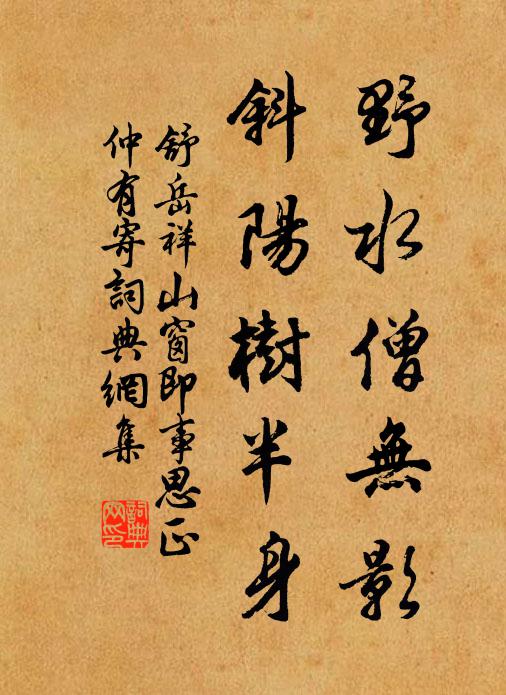 野水僧無影
斜陽樹半身
舒岳祥山窗即事思正
仲有寄詞典網集
詞典网印